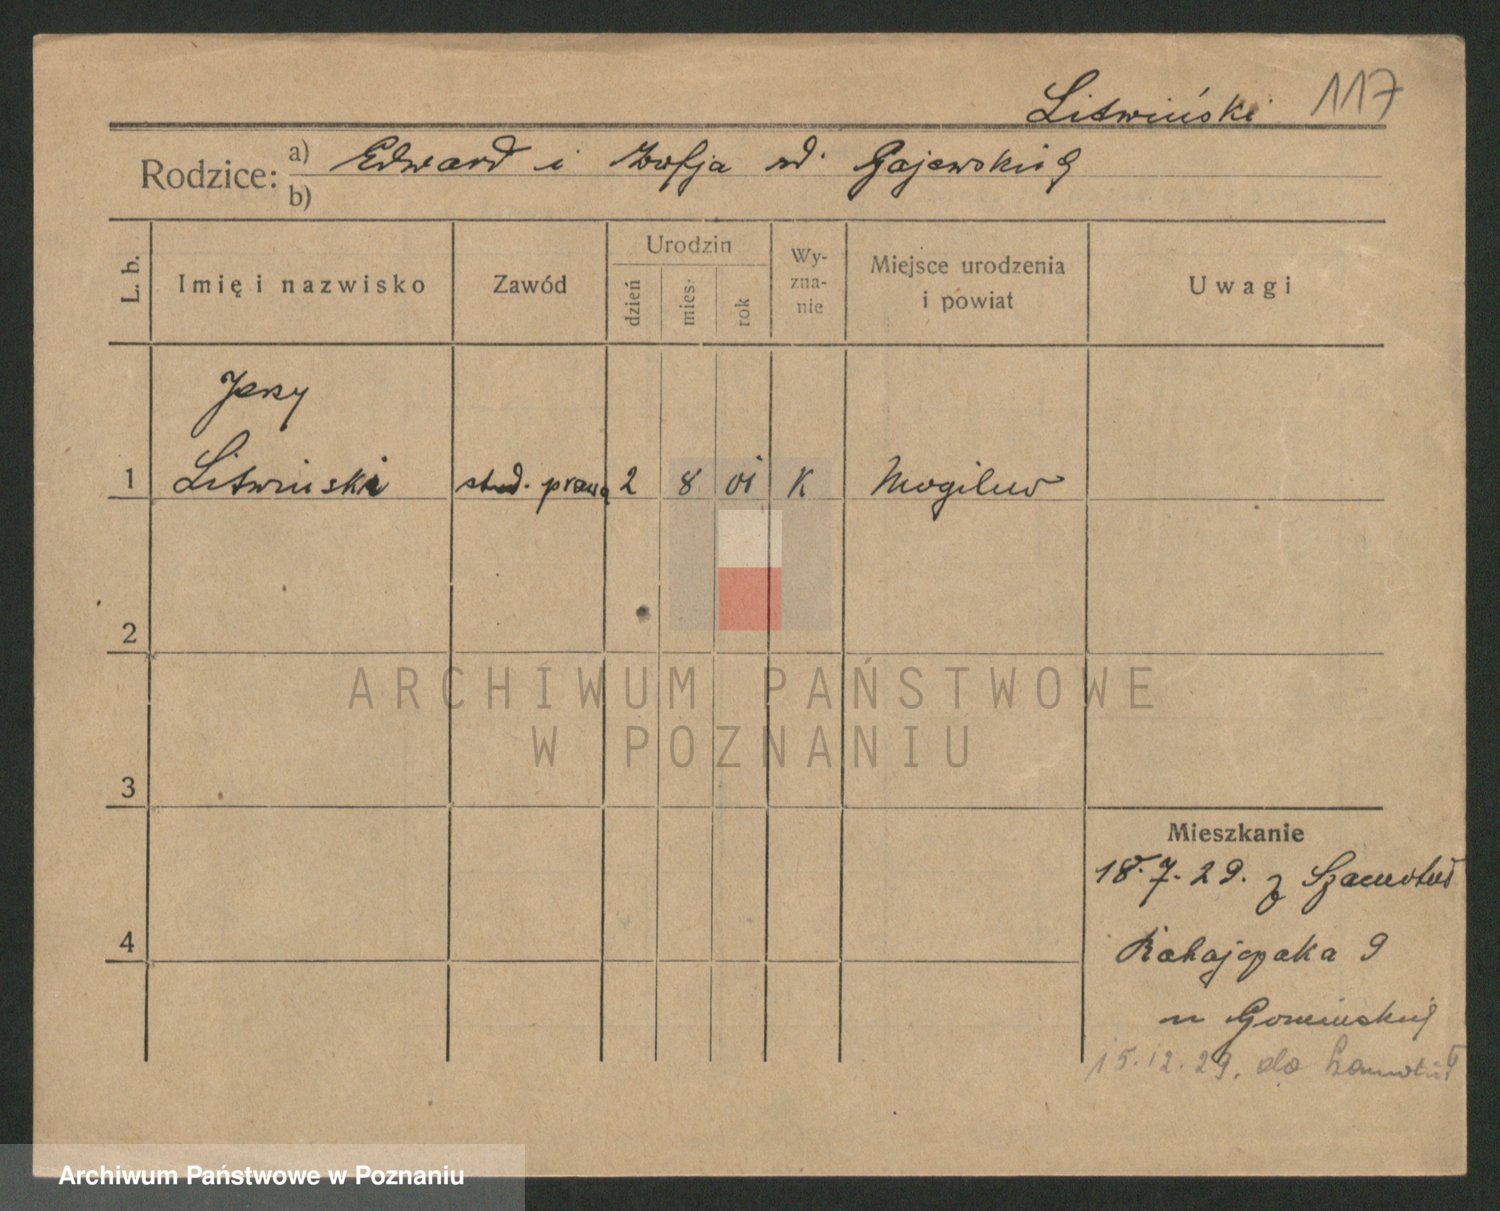 Litwiński 117
Rodzice: a) Edward i Zofja rd. Gajewskich
b)
L. b.
Imię i nazwisko
Zawód
Urodzin
dzień
mies.
rok
Wy-
zna-
nie
Miejsce urodzenia
i powiat
Uwagi
Jerzy
1 Litwinski stud. prawa 2 8 01 K Mogilew
2
3
4
Mieszkanie
18.7.29. z Szamotuł
9
u
15.12.29. do Szamotuł
ARCHIWUM PAŃSTWOWE
W POZNANIU
Archiwum Państwowe w Poznaniu